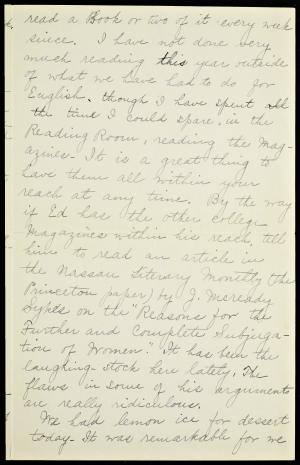 read a Book or two of it every week
since. I have not done very
much reading this year outside
of what we have had to do for
English. though I have spent all
the time I could spare, in the
Reading Room, reading the Mag-
azines. It is a great thing to
have them all within your
reach at any time. By the way
if Ed has the other College
Magazines within his reach, tell
him to read an article in
the Nassau Literary Monthly (the
Princeton paper) by J. McCready
Sykes on the "Reasons for the
Further and Complete Subjuga-
tion of Women." It has been the
laughing-stock here lately. The
flaws in some of his arguments
are really ridiculous.
We had lemon ice for dessert
today. It was remarkable for we